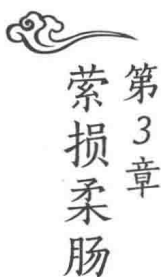 第3章
萦损柔肠